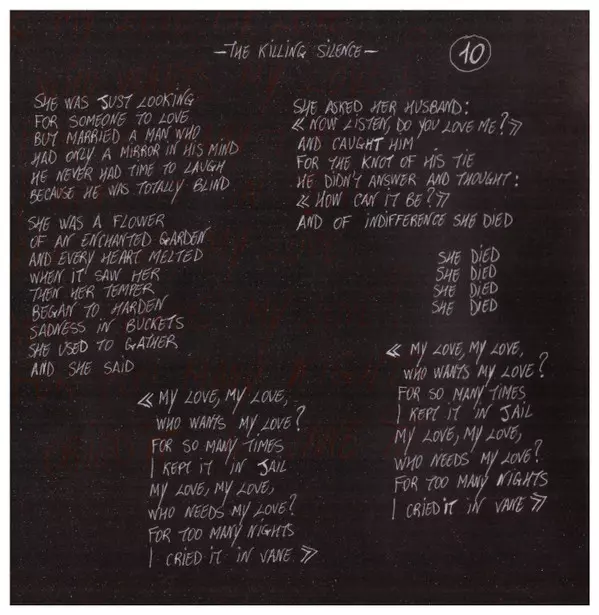 -THE KILLING SILENCE-
10
SHE WAS JUST LOOKING
FOR SOMEONE TO LOVE
BUT MARRIED A MAN WHO
HAD ONLY A MIRROR IN HIS MIND
HE NEVER HAD TIME TO LAUGH
BECAUSE HE WAS TOTALLY BLIND
SHE WAS A FLOWER
OF AN ENCHANTED GARDEN
AND EVERY HEART MELTED
WHEN IT SAW HER
THEN HER TEMPER
BEGAN TO HARDEN
SADNESS IN BUCKETS
SHE USED TO GATHER
AND SHE SAID
« MY LOVE, MY LOVE,
WHO WANTS MY LOVE?
FOR SO MANY TIMES
I KEPT IT IN JAIL
MY LOVE, MY LOVE,
WHO NEEDS MY LOVE?
FOR TOO MANY NIGHTS
I CRIED IT IN VANE »
SHE ASKED HER HUSBAND:
« NOW LISTEN, DO YOU LOVE ME? »
AND CAUGHT HIM
FOR THE KNOT OF HIS TIE
HE DIDN'T ANSWER AND THOUGHT:
« HOW CAN IT BE? »
AND OF INDIFFERENCE SHE DIED
SHE DIED
SHE DIED
SHE DIED
SHE DIED
« MY LOVE, MY LOVE,
WHO WANTS MY LOVE?
FOR SO MANY TIMES
I KEPT IT IN JAIL
MY LOVE, MY LOVE,
WHO NEEDS MY LOVE?
FOR TOO MANY NIGHTS
I CRIED IT IN VANE »